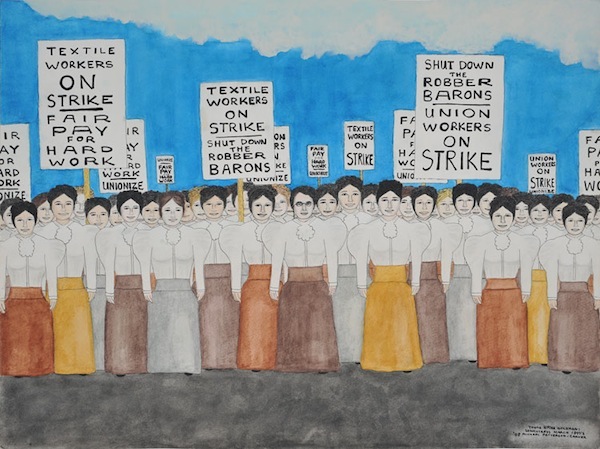 IR
PAY
OR
ARD
WORK
IONIZE
TEXTILE
WORKERS
ON
STRIKE
FAIR
PAY
FOR
HARD
WORK
UNIONIZE
FAIR
PAY
FOR
HARD
WORK
TEXTILE
WORKERS
ON
STRIKE
SHUT DOWN
THE
ROBBER
BARONS
ON
UNIONIZE
FAIR
PAY
FOR
HARD
WORK
UNIONIZE
TEXTILE
WORKERS
ON
STRIKE
FA
PA
FO
HA
WO
UNIO
SHUT DOWN
THE
ROBBER
BARONS
UNION
WORKERS
ON
STRIKE
UNION
WORKERS
ON
STRIKE
FAI
PAY
FO
HAR
WOR